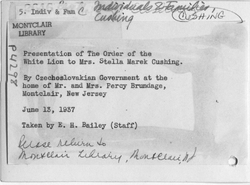 5. Indiv & Fam C Individuals & Families
Cushing
CUSHING
MONTCLAIR
LIBRARY
P4298
Presentation of The Order of the
White Lion to Mrs. Stella Marek Cushing.
By Czechoslovakian Government at the
home of Mr. and Mrs. Percy Brundage,
Montclair, New Jersey
June 13, 1937
Taken by E. H. Bailey (Staff)
Please return to
Montclair Library, Montclair, NJ